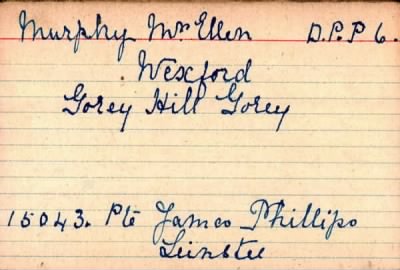 Murphy Mrs Ellen D.P.P 6.
Wexford
Gorey Hill Gorey
15043. Pte James Phillips
Leinster